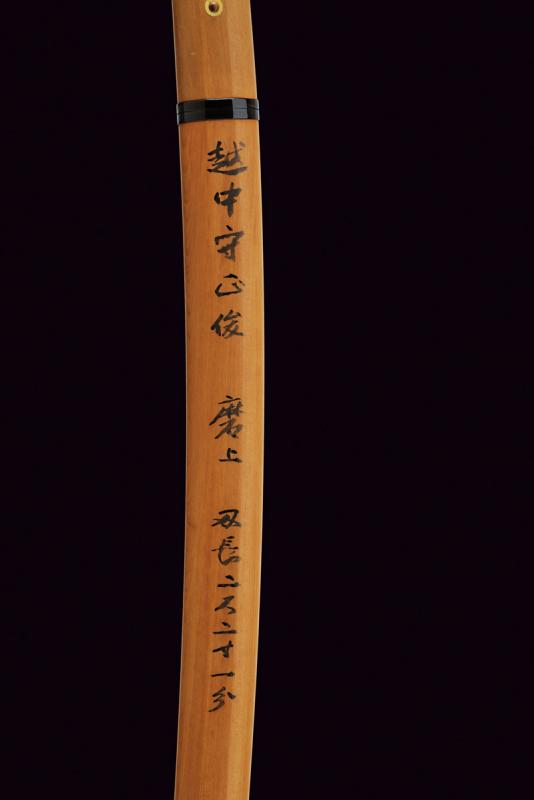 越中守正俊　磨上　刃長二尺二寸一分